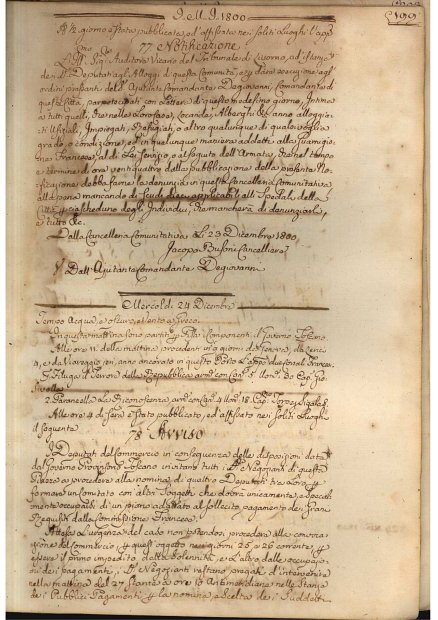 I. M. I. 1800
199
A 1/2 giorno è stato pubblicato, ed affissato nei soliti Luoghi l'app.
77. Notificazione
Auditore Vicario del Tribunale di Livorno, ad
dei SS. Deputati agli Alloggi di questa Comunità, e p dare esecuzione agl'
ordini pressanti dell' Ajutante Comandante Degiovanni, Comandante di
questa Città, partecipati con Lettera di questo medesimo giorno, Intima
a tutti quelli, che nelle loro Case, Locande, Alberghi &c. anno alloggia
ti Ufiziali, Impiegati, Refugiati, o altro qualunque di qualsivoglia
grado, o condizione, ed in qualunque maniera addetti alla Guarnigio
ne Francese, al di Lei servizio, o al seguito dell'Armata, che nel tempo
e termine di ore venti quattro dalla pubblicazione della presente No
tificazione debba farne la denunzia in questa Cancelleria Comunitativa
alla pena mancando di Scudi dieci applicabili alli Spedali della
Città p ciascheduno degli Individui, che mancherà di denunziarli,
e tutto &c.
Dalla Cancelleria Comunitativa Li 23 Dicembre 1800
Jacopo Busoni Cancelliere
V. Dall'Ajutante Comandante Degiovanni
Mercoldì 24 Dicembre
Tempo Acqua, e oscuro, e Vento a Greco.
Questa mattina sono partiti p Pisa i Componenti il Governo Toscano
Alle ore 11 della mattina procedenti in 9 giorni di Francia, da
e, e da Viareggio jeri, anno ancorato in questo Porto L'appo. due Corsali Francesi
1. Filuga il Terrore della Repubblica arm. con Can. 5 Uom. 30 Cap.
2. Paranzella La Riconoscenza arm. con Can. 4 Uom. 18. Cap.
Alle ore 4 di sera è stato pubblicato, ed affissato nei soliti Luoghi
il seguente
78 Avviso
I Deputati del Commercio in conseguenza delle disposizioni date
dal Governo Provvisorio Toscano invitano tutti i SS. Negozianti di questa
Piazza a procedere alla nomina di quattro Deputati tra Loro, p
formare un Comitato con altri Soggetti che dovrà unicamente, e special
mente occuparsi di un piano adattato al sollecito pagamento dei Grani
Requisiti dalla Commissione Francese.
Attesa l'urgenza del caso non potendosi procedere alla convoca
zione del Commercio p quest'oggetto nei giorni 25 e 26 corrente p
essere il primo impedito dalla Solennità, e L'altro dalle occupazio
ni dei pagamenti, i SS. Negozianti restano pregati d'intervenire
nella mattina del 27 stante a ore 10 Antimeridiane nelle Stanze
dei Pubblici Pagamenti p la nomina, e scelta dei Suddetti